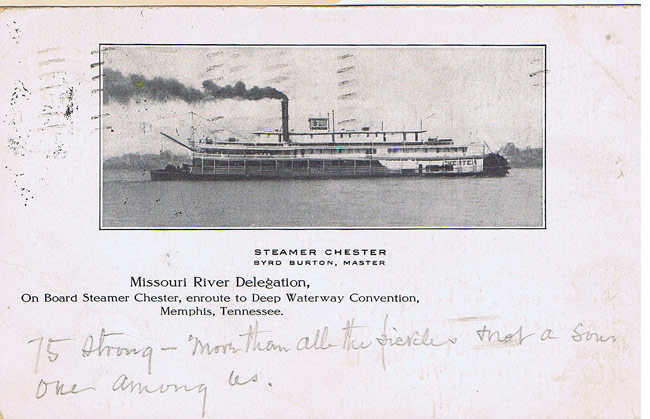 CHESTER
STEAMER CHESTER
BYRD BURTON, MASTER
Missouri River Delegation,
On Board Steamer Chester, enroute to Deep Waterway Convention,
Memphis, Tennessee.
75 Strong – More than all the pickles & not a sour
one among us.